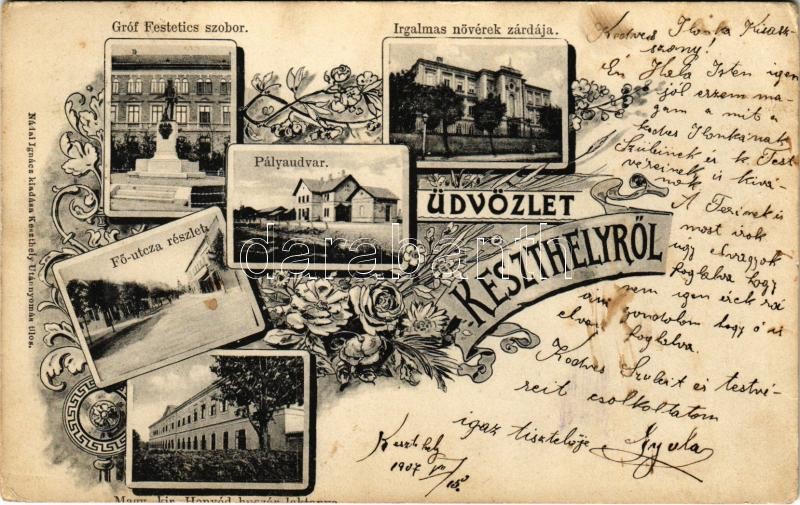 Gróf Festetics szobor.
Irgalmas növérek zárdája.
Pályaudvar.
ÜDVÖZLET
KESZTHELYRŐL
Fő-utcza részlet.
Magy. kir. Honvéd huszár laktanya
Nádai Ignácz kiadása Keszthely Utánnyomás tilos.
darabanth
Kedves Ilonka Kisasz-
szony!
Én Hála Isten igen
jól érzem ma-
gam a mit a
kedves Ilonkának
Szüleinek és k. Test
véreinek is kivá-
nok
A Terinek is
most irok
úgy elvagyok
foglalva hogy
nem igen érek rá
gondolom hogy ő is
el van foglalva.
Kedves Szüleit és testvé-
reit csolkoltatom
igaz tisztelője Gyula
Keszthely
1907 VII/15